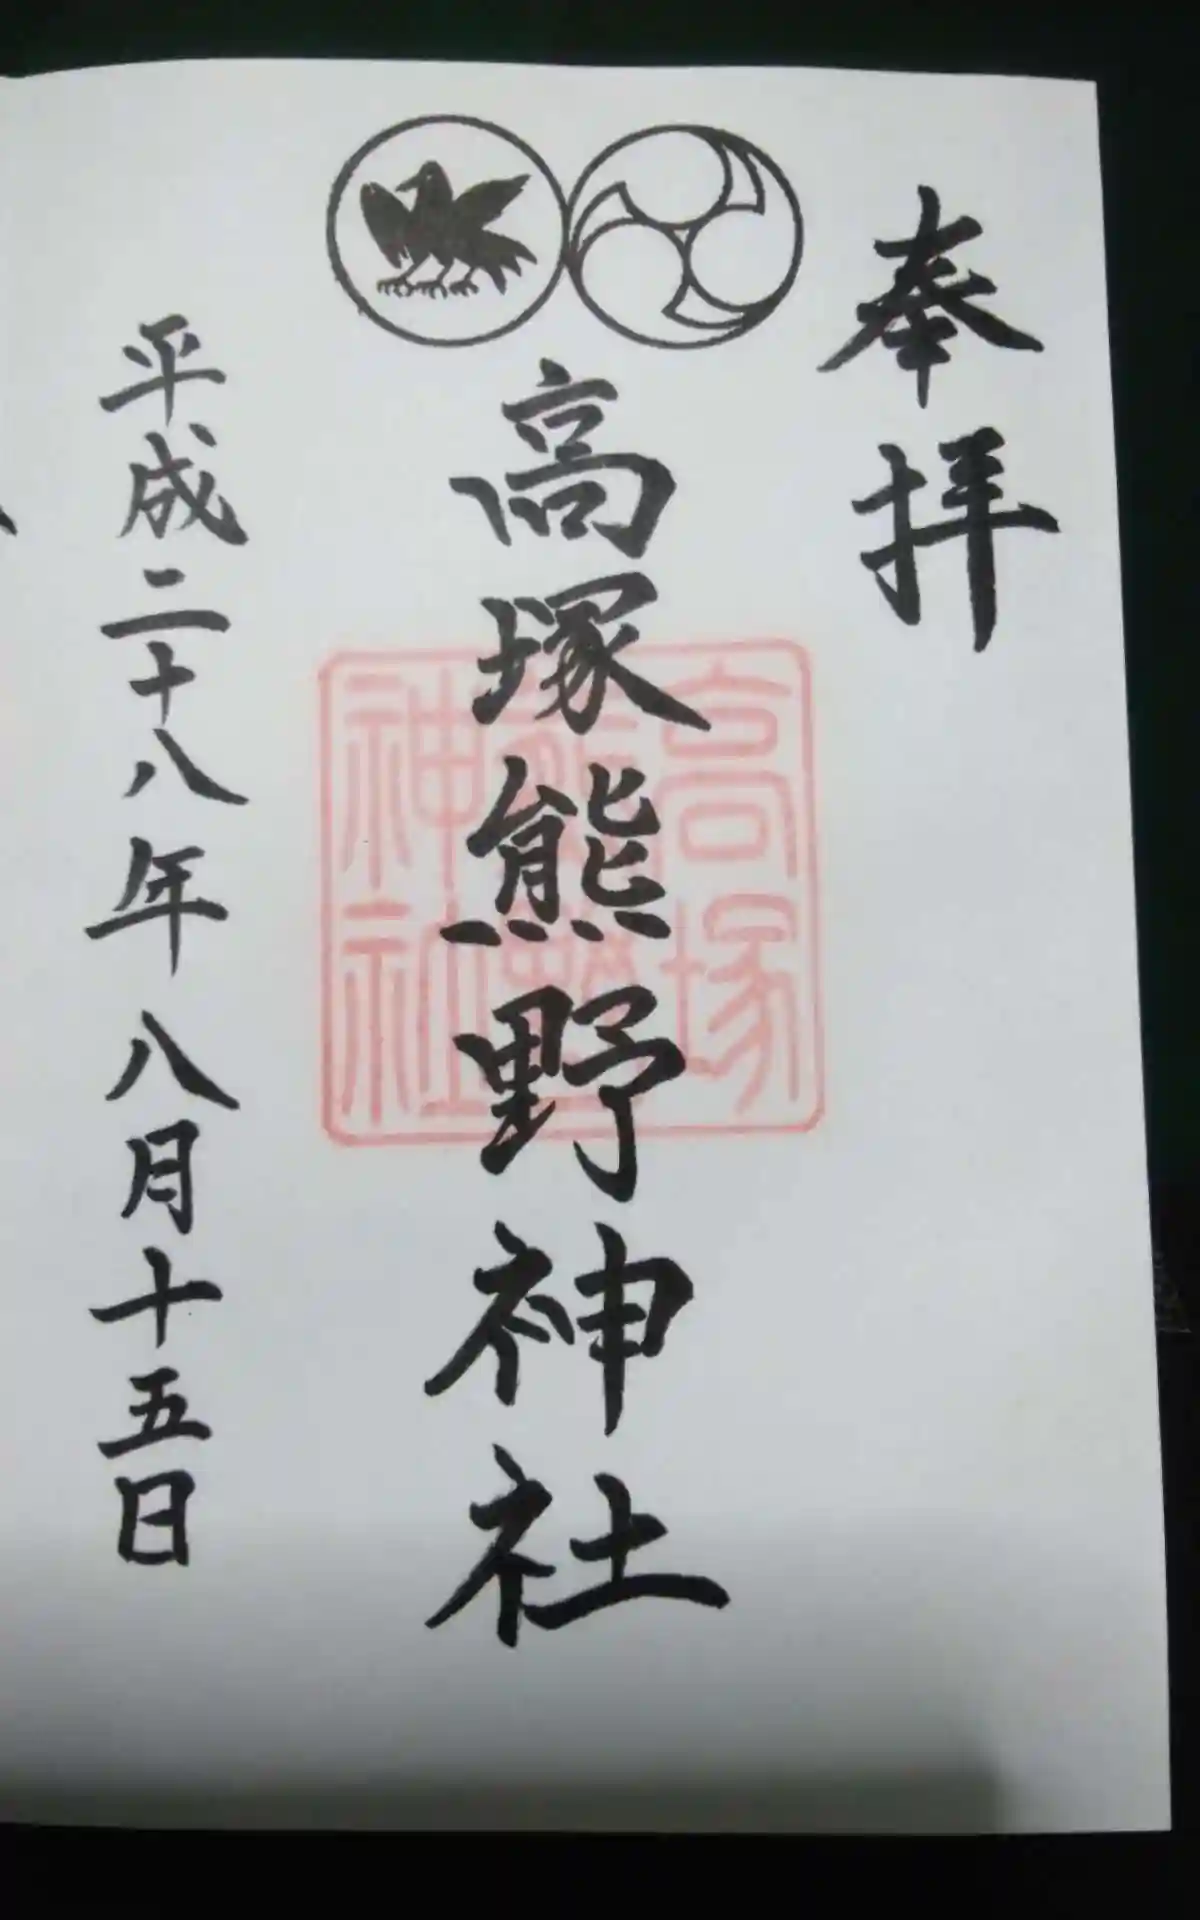 奉拝
高塚熊野神社
高塚熊野神社
平成二十八年八月十五日